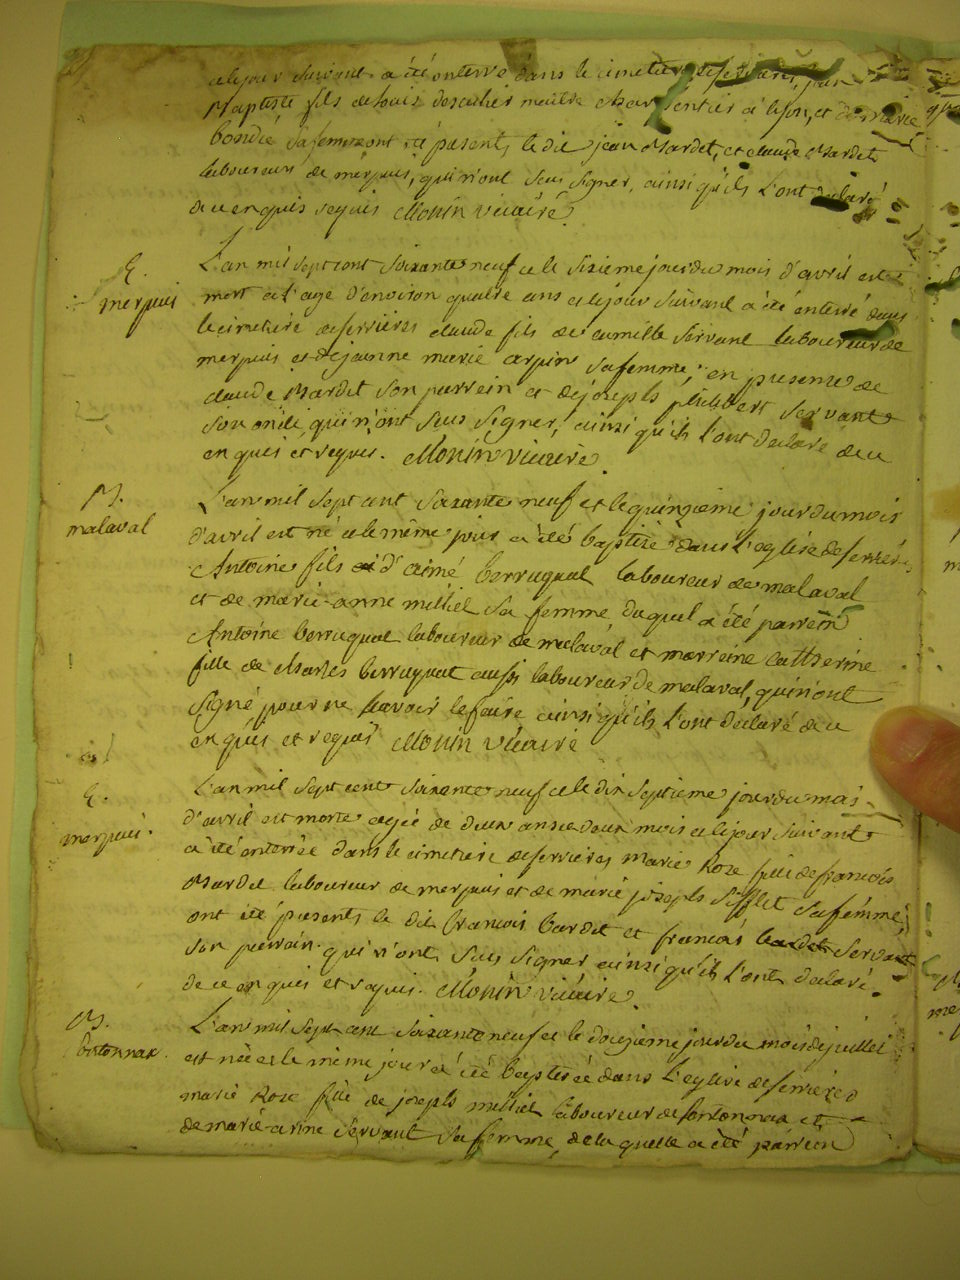 et le jour suivant a été enterré dans le cimetiere de serrieres, jean
Baptiste fils de louis descolier maitre charpentier à lyon, et de marie
bondié sa femme ont été presents le dit jean Mardet, et claude Mardet
laboureurs de merpuis, qui n'ont seus signer, ainsi qu'ils l'ont declaré
de ce enquis requis Monin vicaire
E.
merpuis
L'an mil sept cent soixante neuf et le sixieme jour du mois d'avril est
mort a l'age d'environ quatre ans et le jour suivant a été enterré dans
le cimetiere de serrières claude fils de camille servant laboureur de
merpuis et de jeanne marie arpin sa femme; en presence de
claude Mardet son parrein et de joseph philibert servant
son oncle, qui n'ont seus signer, ainsi qu'ils l'ont declaré de ce
enquis et requis. Monin vicaire
M.
malaval
L'an mil sept cent soixante neuf et le quinzieme jour du mois
d'avril est né et le même jour a été baptisé dans l'eglise de serrieres
Antoine fils d'aimé berruquat laboureur de malaval
et de marie-anne milliet sa femme duquel a été parrein
Antoine berruquat laboureur de malaval et marreine catherine
fille de charles berruquat aussi laboureur de malaval, qui n'ont
signé pour ne scavoir le faire ainsi qu'ils l'ont declaré de ce
enquis et requis Monin vicaire
E.
merpuis.
L'an mil sept cent soixante neuf et le dix septieme jour du mois
d'avril est morte agée de deux ans et deux mois et le jour suivant
a été enterrée dans le cimetiere de serrieres marie Roze fille de francois
Mardet laboureur de merpuis et de marie joseph sifflet sa femme;
ont été presents le dit francois bardet et francois servant
son parrein qui n'ont seus signer ainsi qu'ils l'ont declaré.
de ce enquis et requis. Monin vicaire.
M.
fontonnax.
L'an mil sept cent soixante neuf et le douzieme jour du mois de juillet
est née et le même jour a été baptisée dans l'eglise de serrieres
marie Roze fille de joseph milliet laboureur de fontonnax et
de marie-anne servant sa femme, de la quelle a été parrein